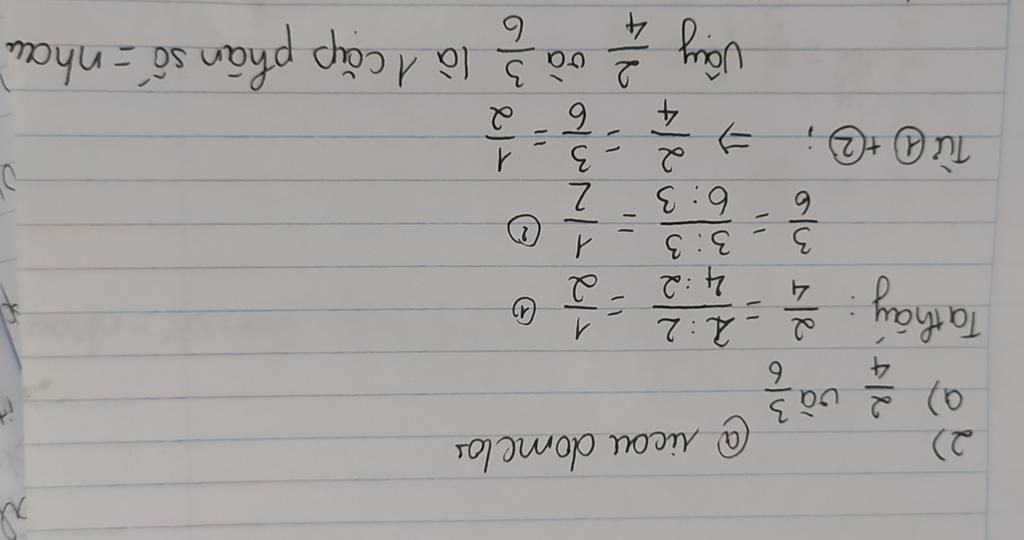 2) @ucou domclos
a) 2/4 và 3/6
Ta thấy: 2/4 = 2:2/4:2 = 1/2 ①
3/6 = 3:3/6:3 = 1/2 ②
Từ ① + ②: ⇒ 2/4 = 3/6 = 1/2
Vậy 2/4 và 3/6 là 1 cặp phân số = nhau